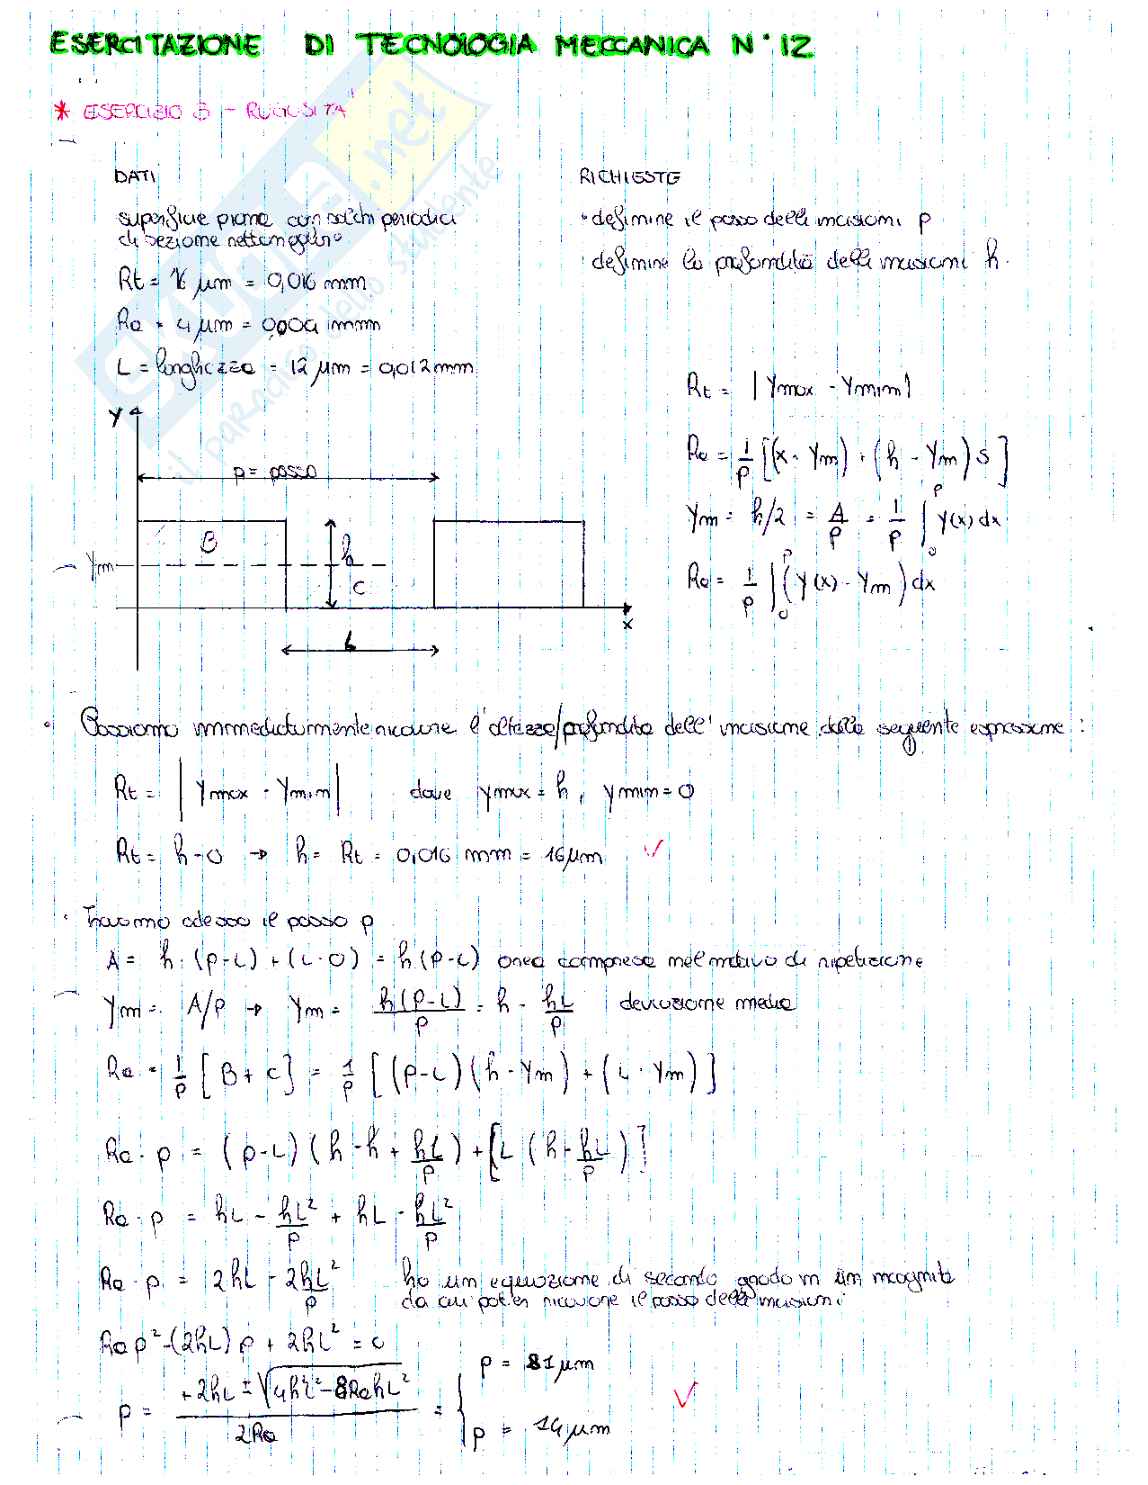 ESERCITAZIONE DI TECNOLOGIA MECCANICA N°12
* ESERCIZIO 3 - RUGOSITA'
DATI
superficie piana con solchi periodici
di sezione rettangolare
Rt = 16 μm = 0,016 mm
Ra = 4 μm = 0,004 mm
L = lunghezza = 12 μm = 0,012 mm
RICHIESTE
• definire il passo delle incisioni p
• definire la profondità delle incisioni h.
Rt = |Ymax - Ymin|
Ra = 1/p [(x - Ym) · (h - Ym) S]
Ym = h/2 = A/p = 1/p ∫₀ᵖ y(x) dx
Ra = 1/p ∫₀ᵖ (y(x) - Ym) dx
Y
p = passo
B
h
Ym
C
x
L
• Possiamo immediatamente ricavare l'altezza/profondità dell'incisione dalla seguente espressione:
Rt = |Ymax - Ymin| dove ymax = h, ymin = 0
Rt = h - 0 → h = Rt = 0,016 mm = 16 μm ✓
• Troviamo adesso il passo p
A = h · (p-L) + (L·0) = h(p-L) area compresa nel motivo di ripetizione
Ym = A/p → Ym = h(p-L)/p = h - hL/p deviazione media
Ra = 1/p [B + C] = 1/p [(p-L)(h-Ym) + (L·Ym)]
Ra · p = (p-L)(h - h + hL/p) + [L (h - hL/p)]
Ra · p = hL - hL²/p + hL - hL²/p
Ra · p = 2hL - 2hL²/p ho un equazione di secondo grado in un incognita
da cui poter ricavare il passo delle incisioni
Ra p² - (2hL) p + 2hL² = 0
p = +2hL ± √4h²L² - 8RahL² / 2Ra = { p = 81 μm
p = 14 μm ✓